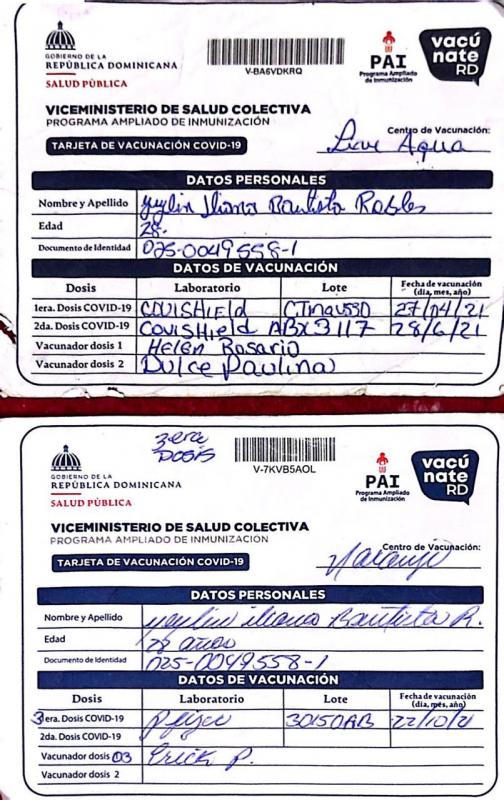 GOBIERNO DE LA
REPÚBLICA DOMINICANA
SALUD PÚBLICA
V-BA6VDKRQ
PAI
Programa Ampliado
de Inmunización
vacú
nate
RD
VICEMINISTERIO DE SALUD COLECTIVA
PROGRAMA AMPLIADO DE INMUNIZACIÓN
TARJETA DE VACUNACIÓN COVID-19
Centro de Vacunación:
Agua
DATOS PERSONALES
Nombre y Apellido Bautista Robles
Edad 28.
Documento de Identidad 025-0049558-1
DATOS DE VACUNACIÓN
Dosis Laboratorio Lote Fecha de vacunación
(día, mes, año)
1era. Dosis COVID-19 COVISHIELD 27/04/21
2da. Dosis COVID-19 COVISHIELD ABX3117 28/6/21
Vacunador dosis 1 Helen Rosario
Vacunador dosis 2 Dulce Paulina
3era
DOSIS
GOBIERNO DE LA
REPÚBLICA DOMINICANA
SALUD PÚBLICA
V-7KVB5AOL
PAI
Programa Ampliado
de Inmunización
vacú
nate
RD
VICEMINISTERIO DE SALUD COLECTIVA
PROGRAMA AMPLIADO DE INMUNIZACIÓN
TARJETA DE VACUNACIÓN COVID-19
Centro de Vacunación:
Naranjo
DATOS PERSONALES
Nombre y Apellido Bautista R.
Edad 28 años
Documento de Identidad 025-0049558-1
DATOS DE VACUNACIÓN
Dosis Laboratorio Lote Fecha de vacunación
(día, mes, año)
3era. Dosis COVID-19 Pfizer 30150AB 22/10/21
2da. Dosis COVID-19
Vacunador dosis 03 Erick P.
Vacunador dosis 2